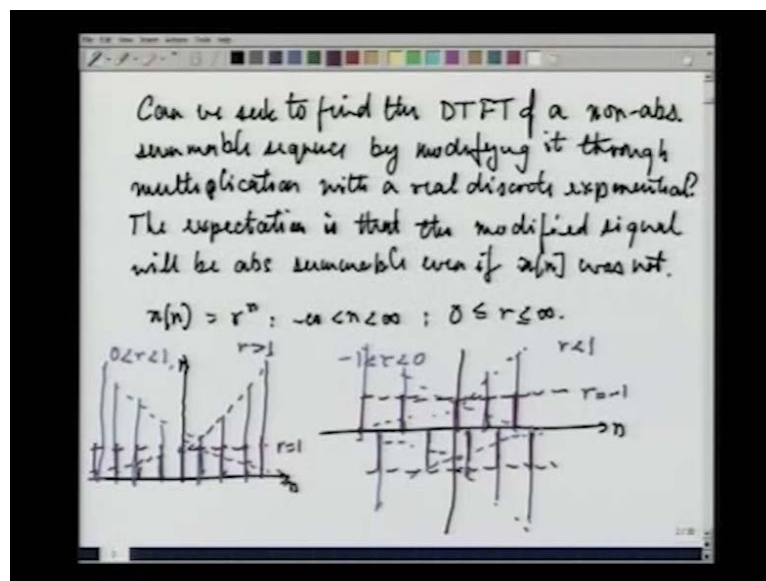 Can we seek to find the DTFT of a non-abs.
summable sequence by modifying it through
multiplication with a real discrete exponential?
The expectation is that the modified signal
will be abs summable even if x[n] was not.
x(n) = r^n : -∞ < n < ∞ ; 0 ≤ r ≤ ∞.
0<r<1 r>1
r=1
n
-1<r<0 r<1
r=-1
n